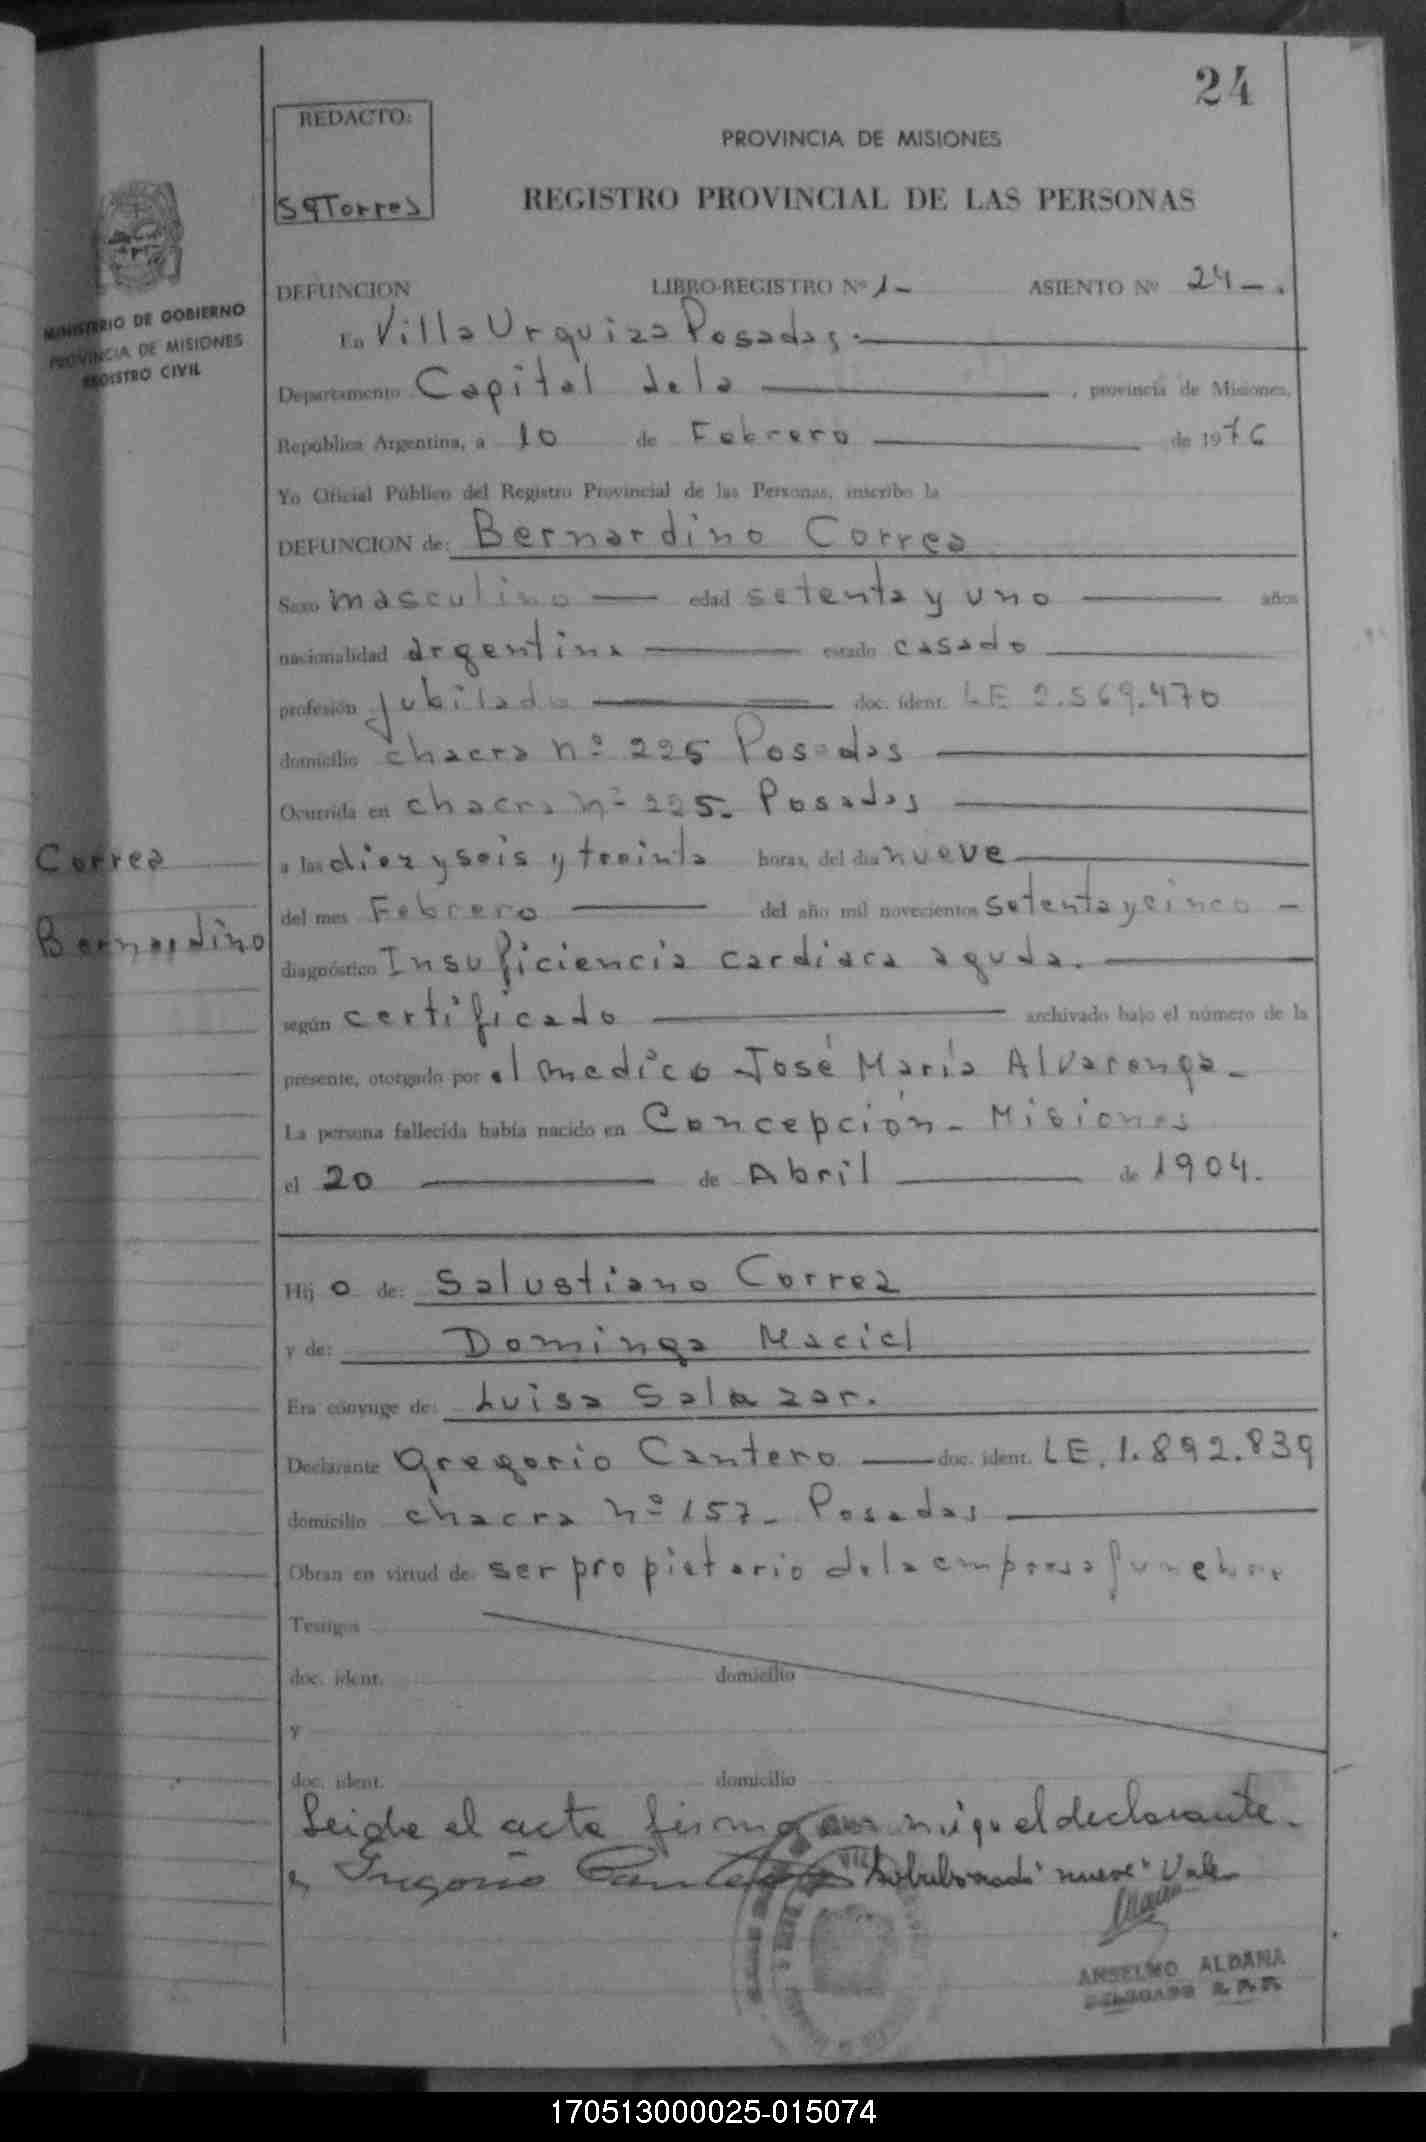 24
REDACTO:
S G Torres
PROVINCIA DE MISIONES
REGISTRO PROVINCIAL DE LAS PERSONAS
MINISTERIO DE GOBIERNO
PROVINCIA DE MISIONES
REGISTRO CIVIL
DEFUNCION LIBRO-REGISTRO Nº 1- ASIENTO Nº 24-.
En Villa Urquiza Posadas.
Departamento Capital de la , provincia de Misiones,
República Argentina, a 10 de Febrero de 1976
Yo Oficial Público del Registro Provincial de las Personas, inscribo la
DEFUNCION de: Bernardino Correa
Sexo masculino edad setenta y uno años
nacionalidad argentina estado casado
profesión jubilado doc. ident. LE 2.569.470
domicilio chacra nº 225 Posadas
Ocurrida en chacra nº 225. Posadas
Correa
a las diez y seis y treinta horas, del día nueve
del mes Febrero del año mil novecientos setenta y cinco -
Bernardino
diagnóstico Insuficiencia cardiaca aguda.
según certificado archivado bajo el número de la
presente, otorgado por el medico José María Alvarenga-
La persona fallecida había nacido en Concepción- Misiones
el 20 de Abril de 1904.
Hij o de: Salustiano Correa
y de: Dominga Maciel
Era cónyuge de: Luisa Salazar.
Declarante Gregorio Cantero doc. ident. LE. 1.892.839
domicilio chacra nº 157- Posadas
Obran en virtud de ser propietario de la empresa funebre
Testigos
doc. ident. domicilio
y
doc. ident. domicilio
Leida el acta firma con migo el declarante.
Gregorio Cantero "nueve" Vale
ANSELMO ALDANA
DELEGADO R.P.P.
170513000025-015074